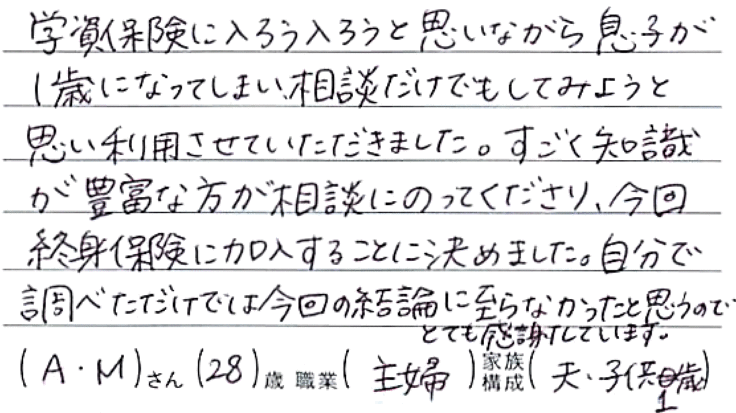 学資保険に入ろう入ろうと思いながら息子が
1歳になってしまい、相談だけでもしてみようと
思い利用させていただきました。すごく知識
が豊富な方が相談にのってくださり、今回
終身保険に加入することに決めました。自分で
調べただけでは今回の結論に至らなかったと思うので
とても感謝しています。
(A・M)さん(28)歳 職業(主婦)家族構成(夫・子供1歳)